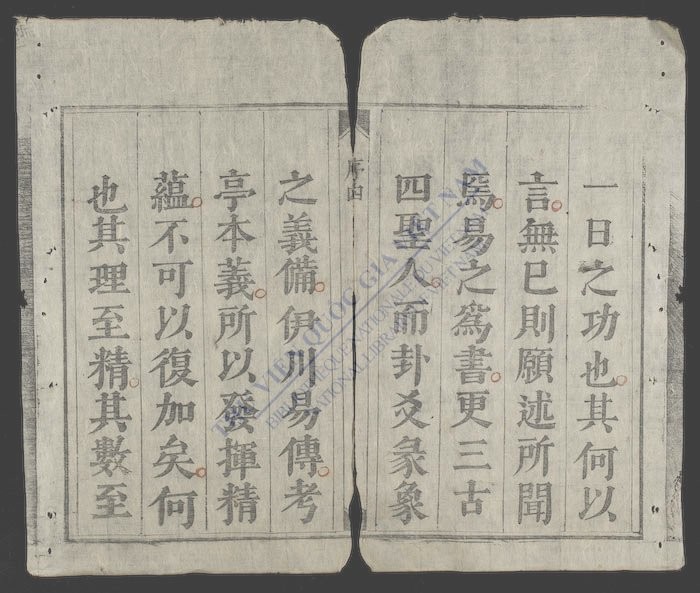 一日之功也其何以
言無已則願述所聞
焉易之為書更三古
四聖人而卦爻彖象
序由
之義備伊川易傳考
亭本義所以發揮精
蘊不可以復加矣何
也其理至精其數至
THƯ VIỆN QUỐC GIA VIỆT NAM
BIBLIOTHEQUE NATIONALE DU VIETNAM
NATIONAL LIBRARY OF VIETNAM